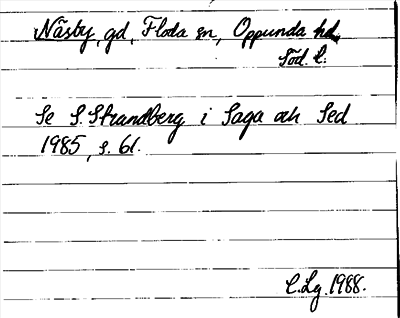 Näsby, gd, Floda sn, Oppunda hd
Söd. l.
Se S. Strandberg i Saga och Sed
1985, s. 61.
C.Lg. 1988.